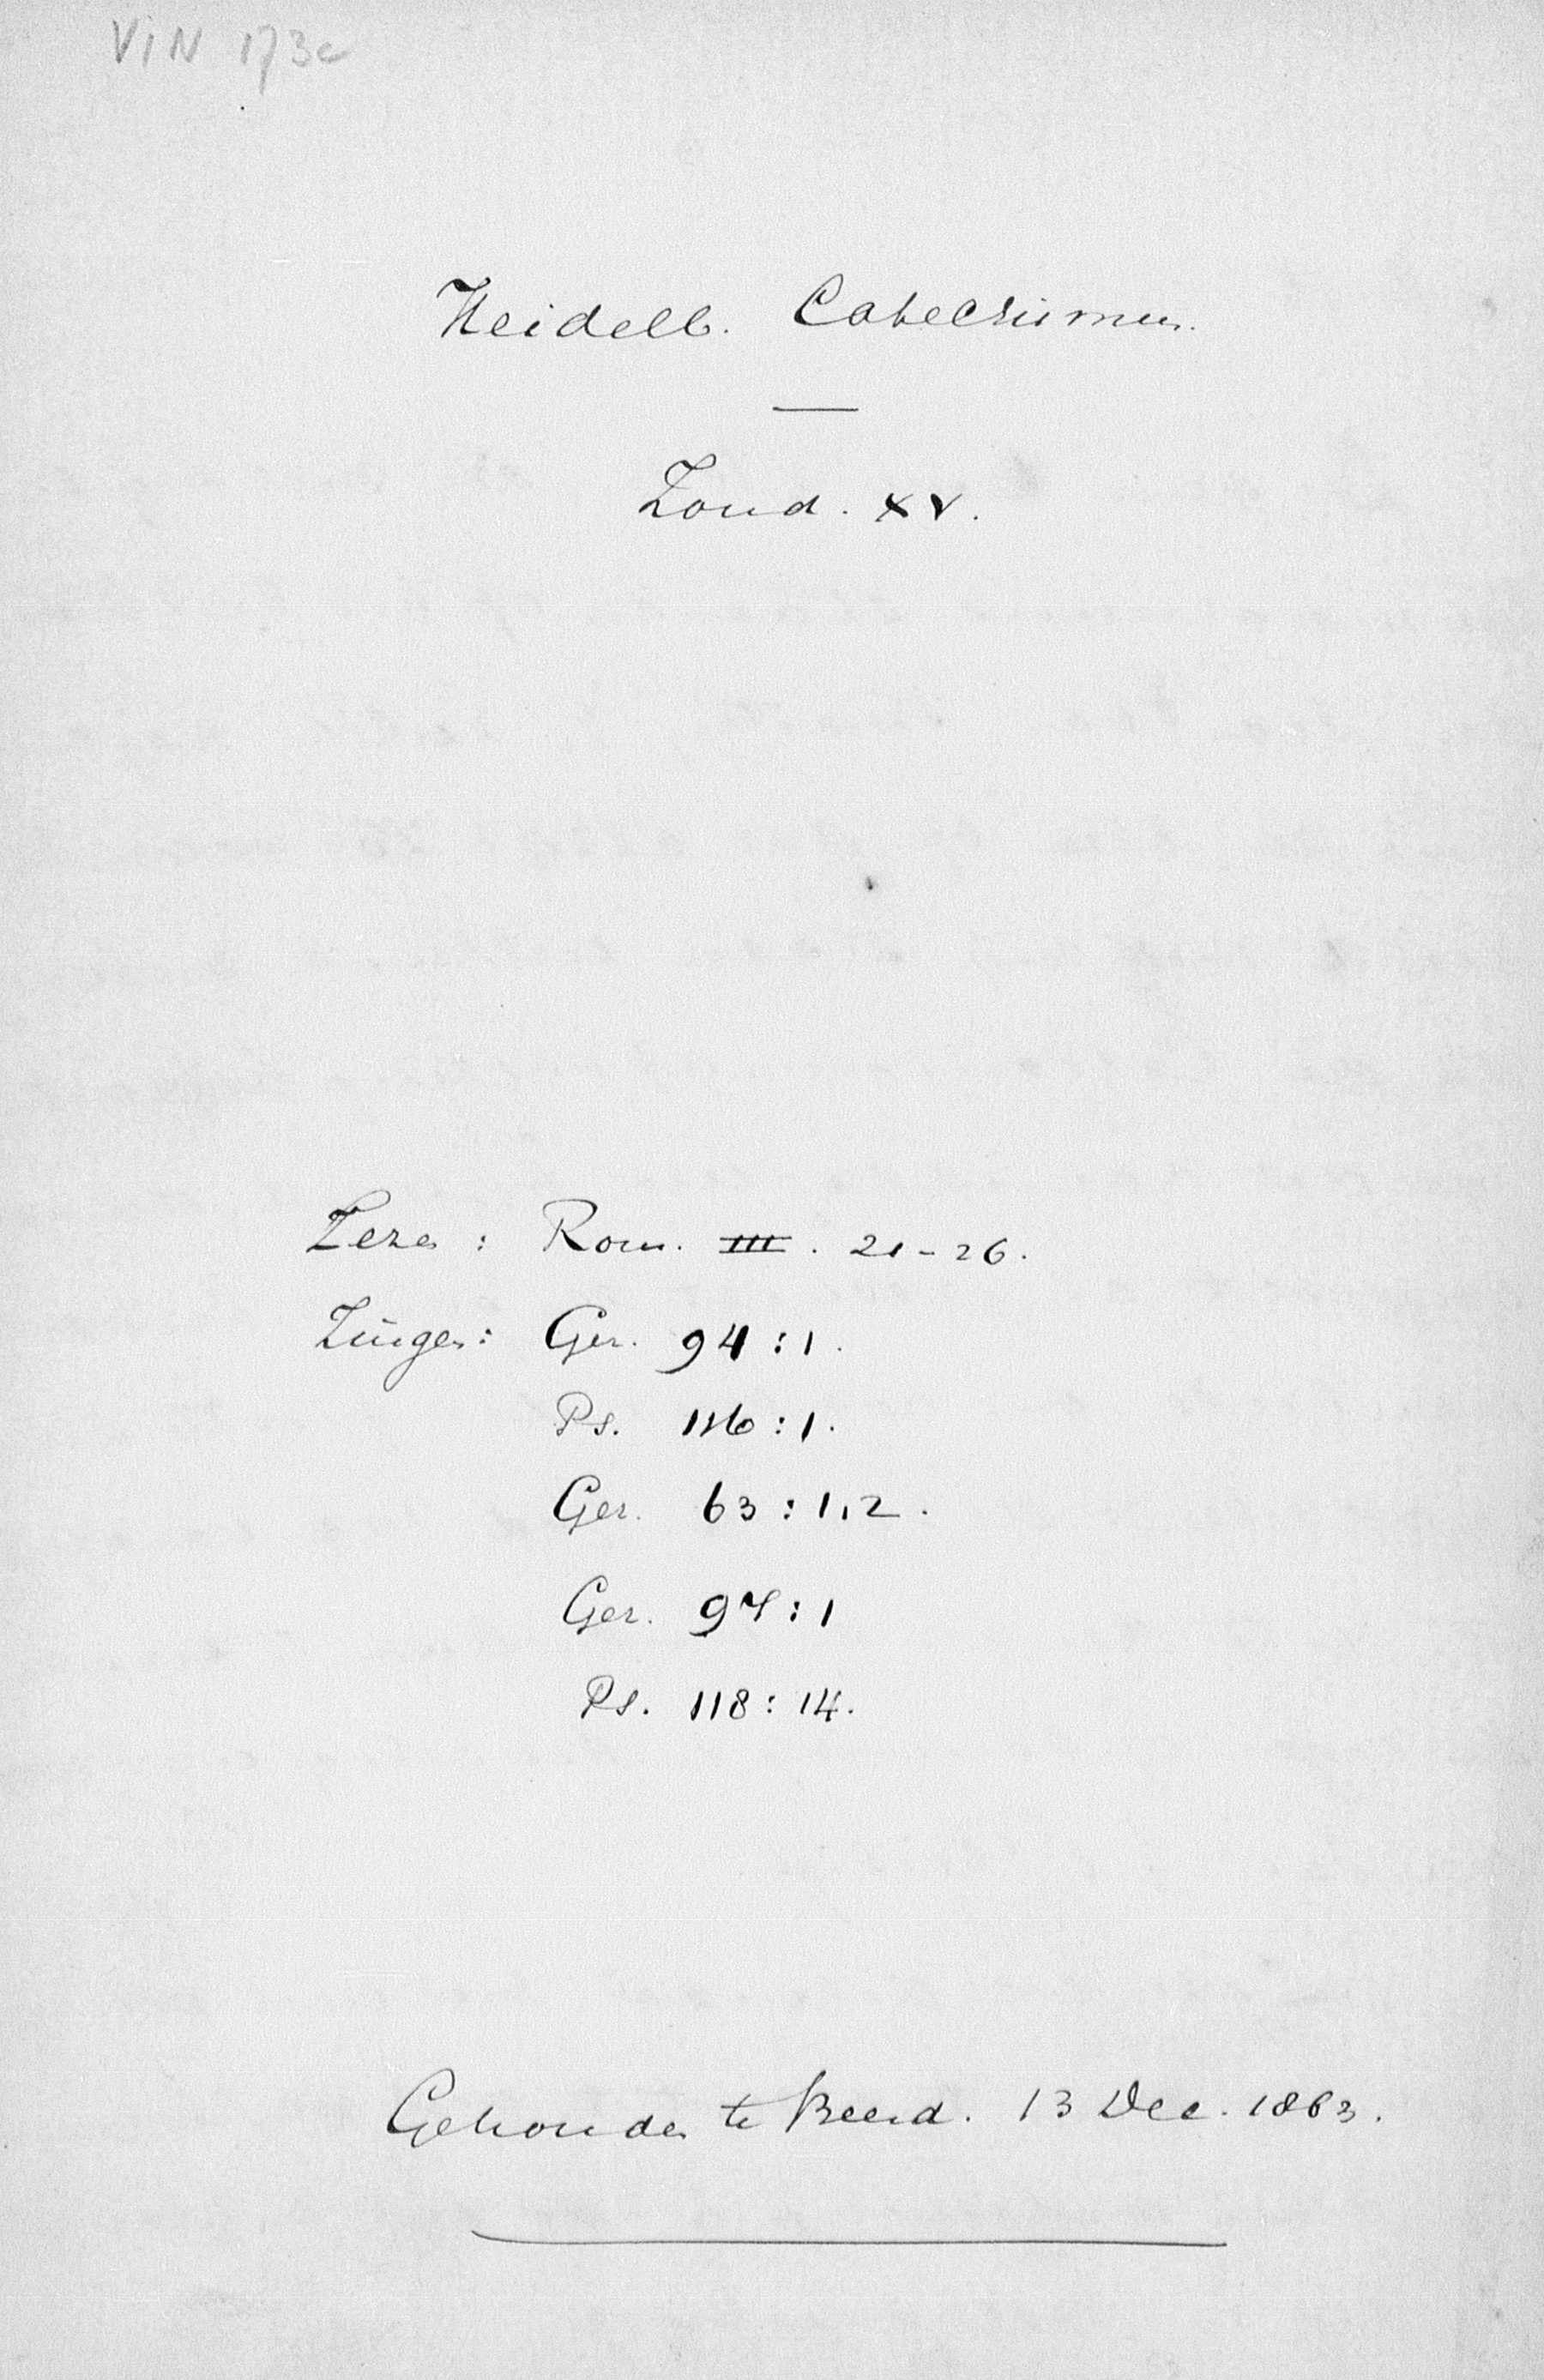 VIN 173c
Heidelb. Catechismus.
Zond. XV.
Lezen : Rom. III. 21-26.
Zingen : Gez. 94 : 1.
Ps. 116 : 1.
Gez. 63 : 1,2.
Gez. 97 : 1
Ps. 118 : 14.
Gehouden te Beesd. 13 Dec. 1863.